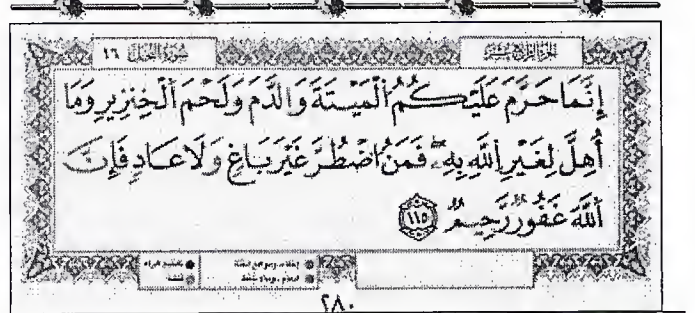 سُورَةُ النَّحْلِ ١٦
إِنَّمَا حَرَّمَ عَلَيْكُمُ ٱلْمَيْتَةَ وَٱلدَّمَ وَلَحْمَ ٱلْخِنزِيرِ وَمَآ
أُهِلَّ لِغَيْرِ ٱللَّهِ بِهِۦ ۖ فَمَنِ ٱضْطُرَّ غَيْرَ بَاغٍ وَلَا عَادٍ فَإِنَّ
ٱللَّهَ غَفُورٌ رَّحِيمٌ ١١٥
٢٨٠